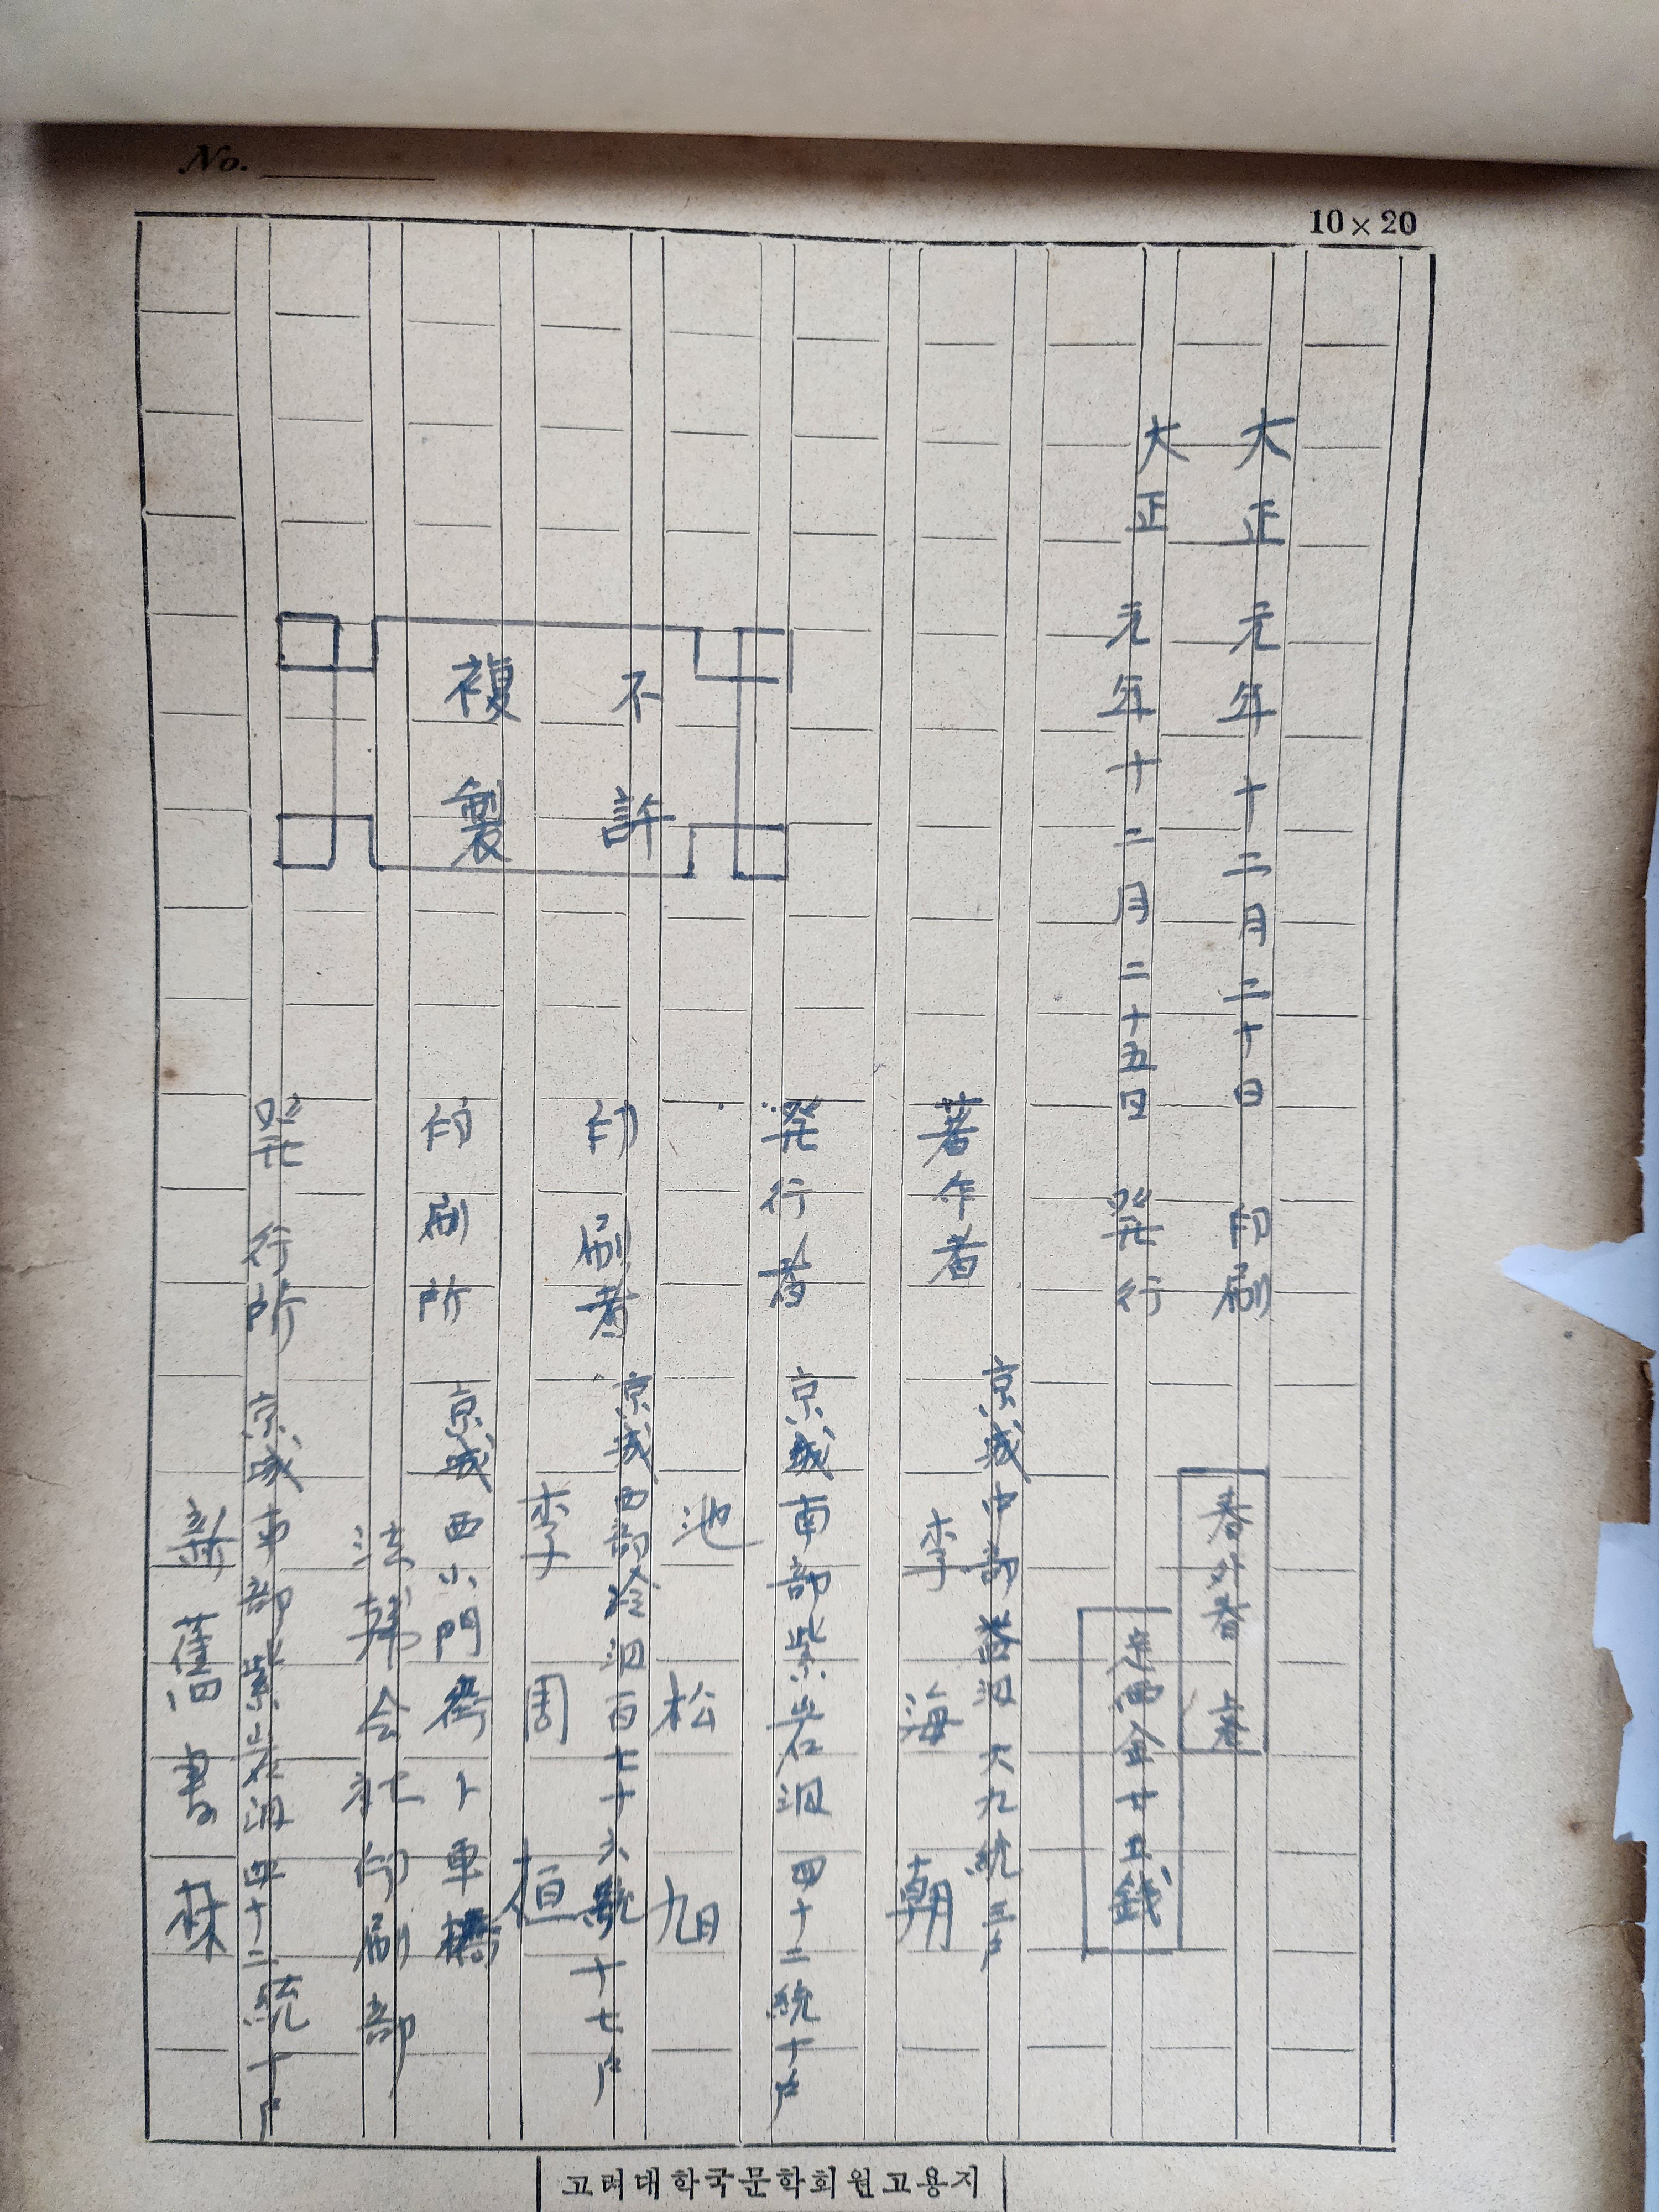 No.
10×20
大正元年十二月二十日 印刷
春外春 上卷
大正元年十二月二十五日 発行
定価金廿五錢
著作者 京城中部 六九統三戶
李海朝
発行者 京城南部紫岩洞四十二統十戶
池松旭
不許
複製
印刷者 京城西部冷洞百七十六統十七戶
李周桓
印刷所 京城西小門街卜車橋
法韓会社印刷部
発行所 京城南部紫岩洞四十二統十戶
新舊書林
고려대학국문학회원고용지